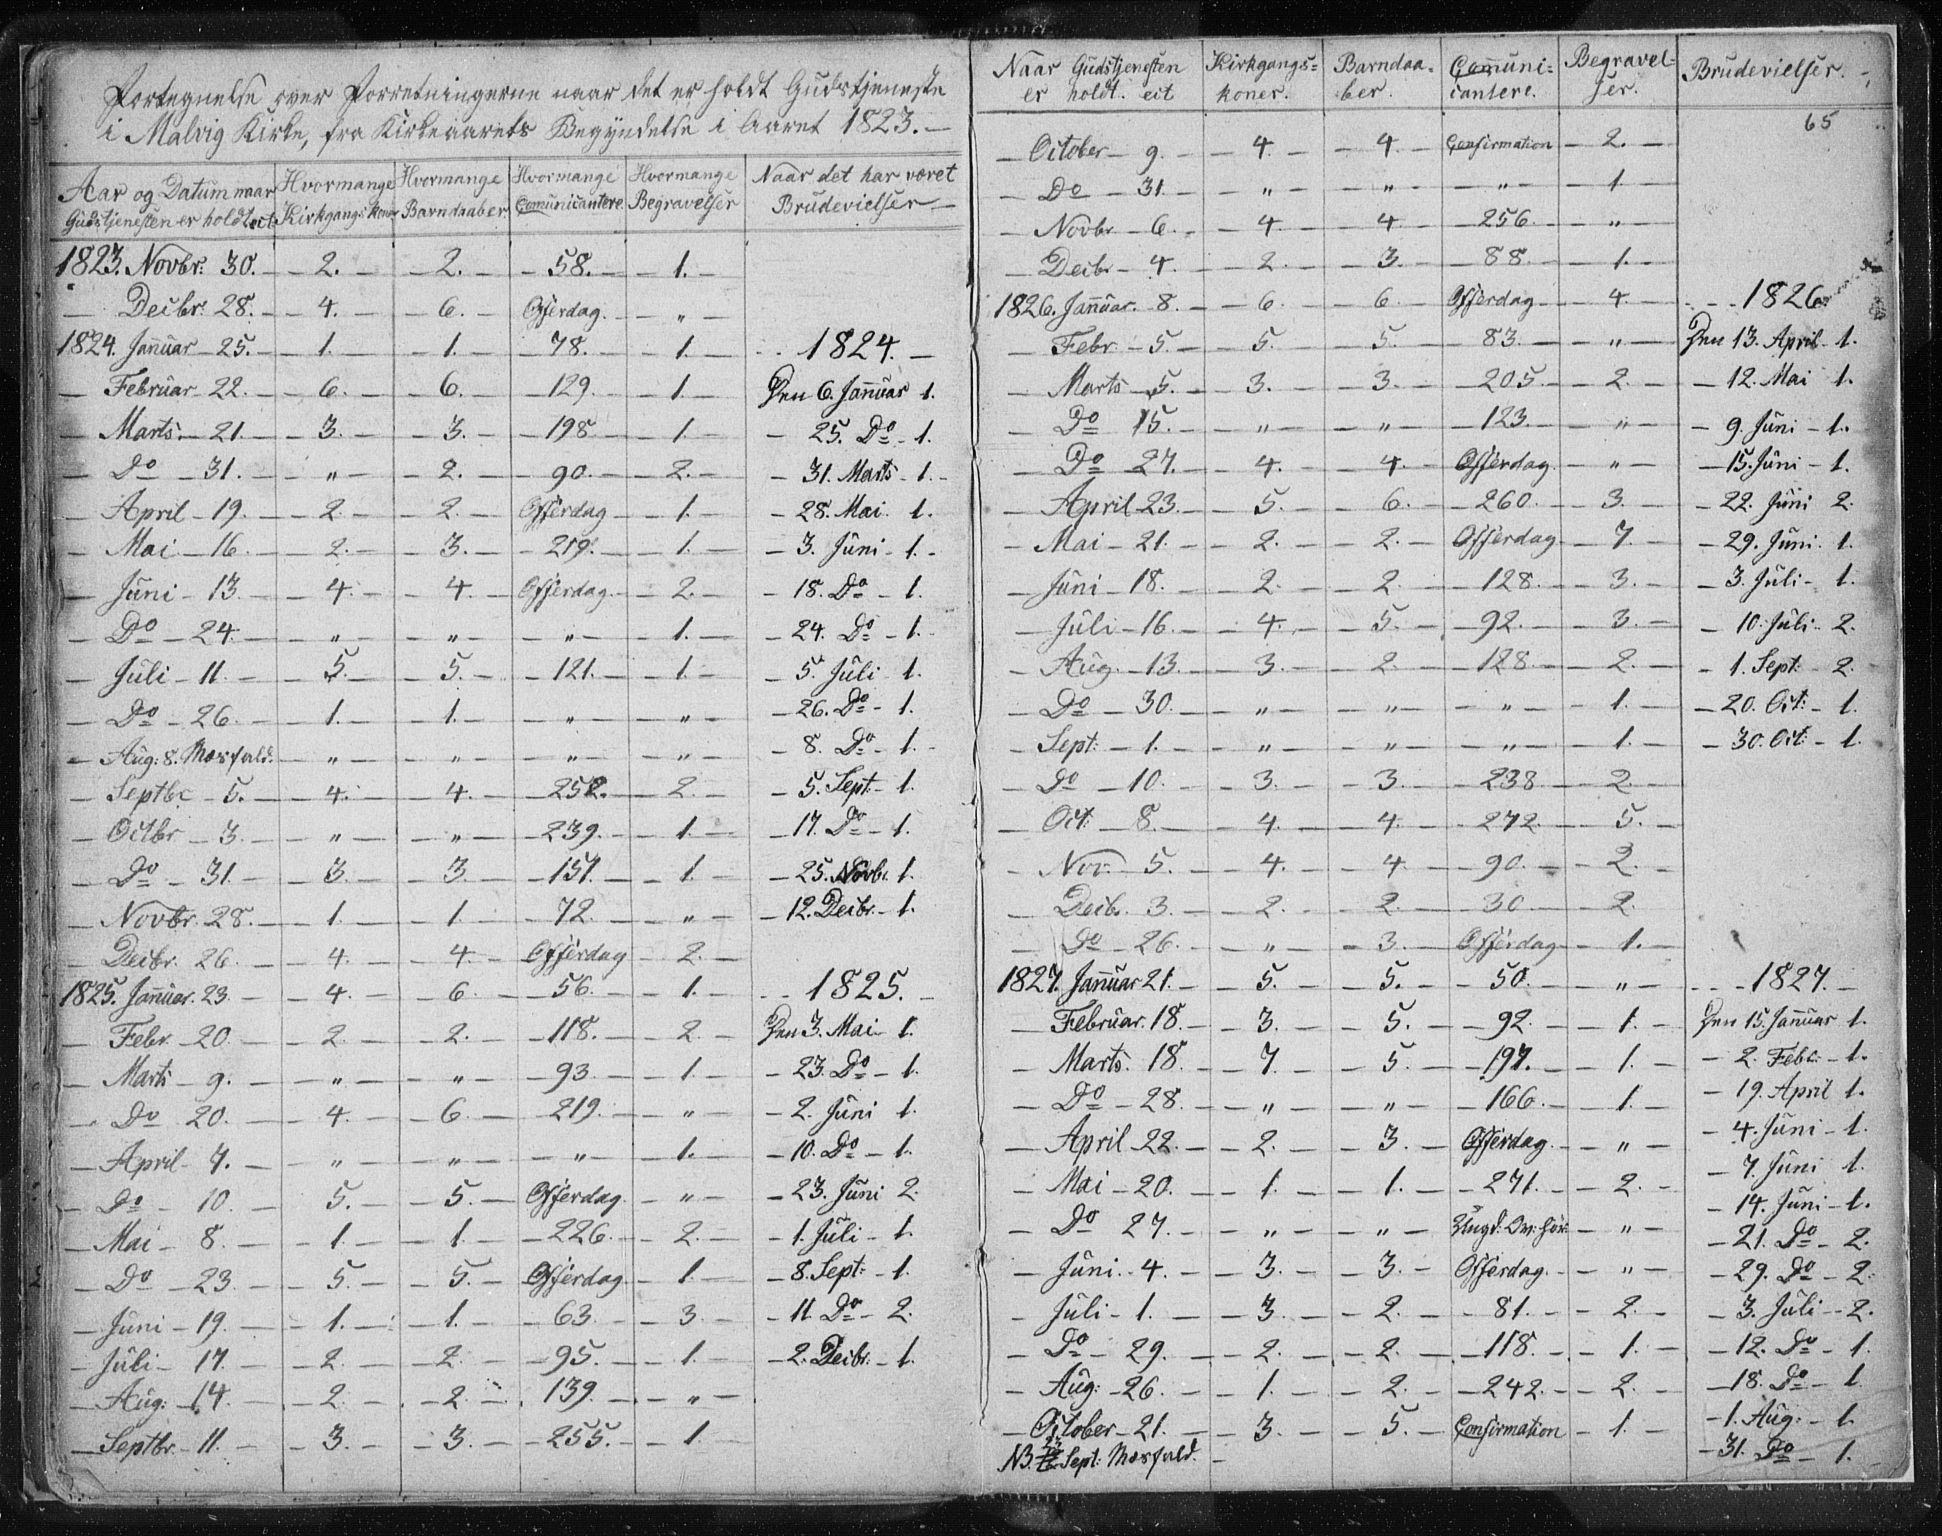 Fortegnelse over Forretningerne naar det er holdt Gudstjeneste
i Malvig Kirke, fra Kirkeaarets Begyndelse i Aaret 1823.—
Aar og Datum naar Gudstjenesten er holdt | Hvormange Kirkgangskoner | Hvormange Barndaaber | Hvormange Comunicantere | Hvormange Begravelser | Naar det har været Brudevielser
1823. Novbr: 30. — 2. — 2. — 58. — 1. —
— Decbr: 28. — 4. — 6. — Offerdag. — „ —
1824. Januar — 25. — 1. — 1. — 78. — 1. — 1824. —
— Februar 22. — 6. — 6. — 129. — 1. — Den 6. Januar 1.
— Marts — 21. — 3. — 3. — 198 — 1. — 25. Do — 1.
— Do — 31. — „ — 2. — 90. — 2. — 31. Marts — 1. —
— April — 19. — 2. — 2. — Offerdag — 1. — 28. Mai. 1.
— Mai — 16. — 2. — 3. — 219. — 1. — 3. Juni — 1. —
— Juni — 13. — 4. — 4. — Offerdag. — 2. — 18. Do — 1.
— Do — 24. — „ — „ — „ — 1. — 24. Do — 1.
— Juli — 11. — 5. — 5. — 121. — 1. — 5. Juli — 1.
— Do — 26. — 1. — 1. — „ — „ — 26. Do — 1.
— Aug: 8. Mosfald. — „ — „ — „ — „ — 8. Do — 1. —
— Septbr — 5. — 4. — 4. — 252. — 2. — 5. Sept — 1.
— Octbr — 3. — „ — „ — 239. — 1. — 17. Do — 1.
— Do — 31. — 3. — 3. — 151. — 1. — 25. Novbr. 1.
— Novbr. 28. — 1. — 1. — 72. — „ — 12. Decbr. — 1.
— Decbr. 26. — 4. — 4. — Offerdag — 2. —
1825. Januar. 23. — 4. — 6. — 56. — 1. — 1825. —
— Febr. — 20. — 2. — 2. — 118. — 2. — Den 3. Mai — 1.
— Marts — 9. — „ — „ — 93. — 1. — 23. Do — 1.
— Do 20. — 4. — 6. — 219. — „ — 2. Juni 1.
— April — 7. — „ — „ — „ — 1. — 10. Do — 1.
— Do — 10. — 5. — 5. — Offerdag. — „ — 23. Juni 2.
— Mai — 8. — 1. — 1. — 226. — 2. — 1. Juli — 1.
— Do — 23. — 5. — 5. — Offerdag — 1. — 8. Sept: — 1.
— Juni — 19. — 1. — 1. — 63. — 3. — 11. Do — 2.
— Juli — 17. — 2. — 2. — 95. — 1. — 2. Decbr. — 1.
— Aug: — 14. — 2. — 2. — 139. — „ —
— Septbr. — 11. — 3. — 3. — 255. — 1. —
Naar Gudstjenesten er holdt. | Kirkgangs=koner. | Barndaa=ber. | Comuni=cantere. | Begravel=ser. | Brudevielser.
65
— October — 9. — 4. — 4. — Confirmation — 2. —
— Do — 31. — „ — „ — „ — 1. —
— Novbr — 6. — 4. — 4. — 256. — „ —
— Decbr — 4. — 2. — 3. — 88. — 1. —
1826. Januar. — 8. — 6. — 6. — Offerdag — 4. — 1826
— Febr. — 5. — 5. — 5. — 83. — „ — Den 13. April. 1.
— Marts — 5. — 3. — 3. — 205. — 2. — 12. Mai 1.
— Do 15. — „ — „ — 123. — „ — 9. Juni — 1.
— Do — 27. — 4. — 4. — Offerdag. — „ — 15. Juni — 1.
— April 23. — 5. — 6. — 260. — 3. — 22. Juni 2.
— Mai — 21. — 2. — 2. — Offerdag — 7. — 29. Juni. 1.
— Juni — 18. — 2. — 2. — 128. — 3. — 3. Juli — 1.
— Juli — 16. — 4. — 5. — 92. — 3. — 10. Juli — 2.
— Aug. — 13. — 3. — 2. — 128. — 2. — 1. Sept: — 2.
— Do — 30. — „ — „ — „ — 1. — 20. Oct: — 1.
— Sept: — 1. — „ — „ — „ — 1. — 30. Oct — 1.
— Do — 10. — 3. — 3. — 238. — 2. —
— Oct: — 8. — 4. — 4. — 272. — 5. —
— Nov: — 5. — 4. — 4. — 90. — 2. —
— Decbr. 3. — 2. — 2. — 30 — 2.
— Do — 26. — „ — 3. — Offerdag — 1. —
1827. Januar 21. — 5. — 5. — 50. — „ — 1827. —
— Februar. 18. — 3. — 5. — 92. — 1. — Den 15. Januar 1.
— Marts. 18. — 7. — 5. — 197. — 1. — 2. Febr. — 1.
— Do — 28. — „ — „ — 166. — 1. — 19. April 1.
— April — 22. — 2. — 3. — Offerdag. — „ — 4. Juni — 1.
— Mai — 20. — 1. — 1. — 271. — 2. — 7. Juni 1.
— 14. Juni — 1.
— Do 27. — „ — „ — Ungd: Ov: hör: — „ — 21. Do — 2.
— Juni. — 4. — 3. — 3. — Offerdag. — „ — 29. Do — 2.
— Juli — 1. — 3. — 2. — 81. — 2. — 3. Juli — 2.
— Do — 29. — 2. — 2. — 118. — 1. — 12. Do — 1.
— Aug: — 26. — 1. — 2. — 242. — 2. — 18. Do — 1.
— October — 21. — 3. — 5. — Confirmation — 1. — 1. Aug: — 1.
NB. Sept: Mosfald. — 31. Do — 1.